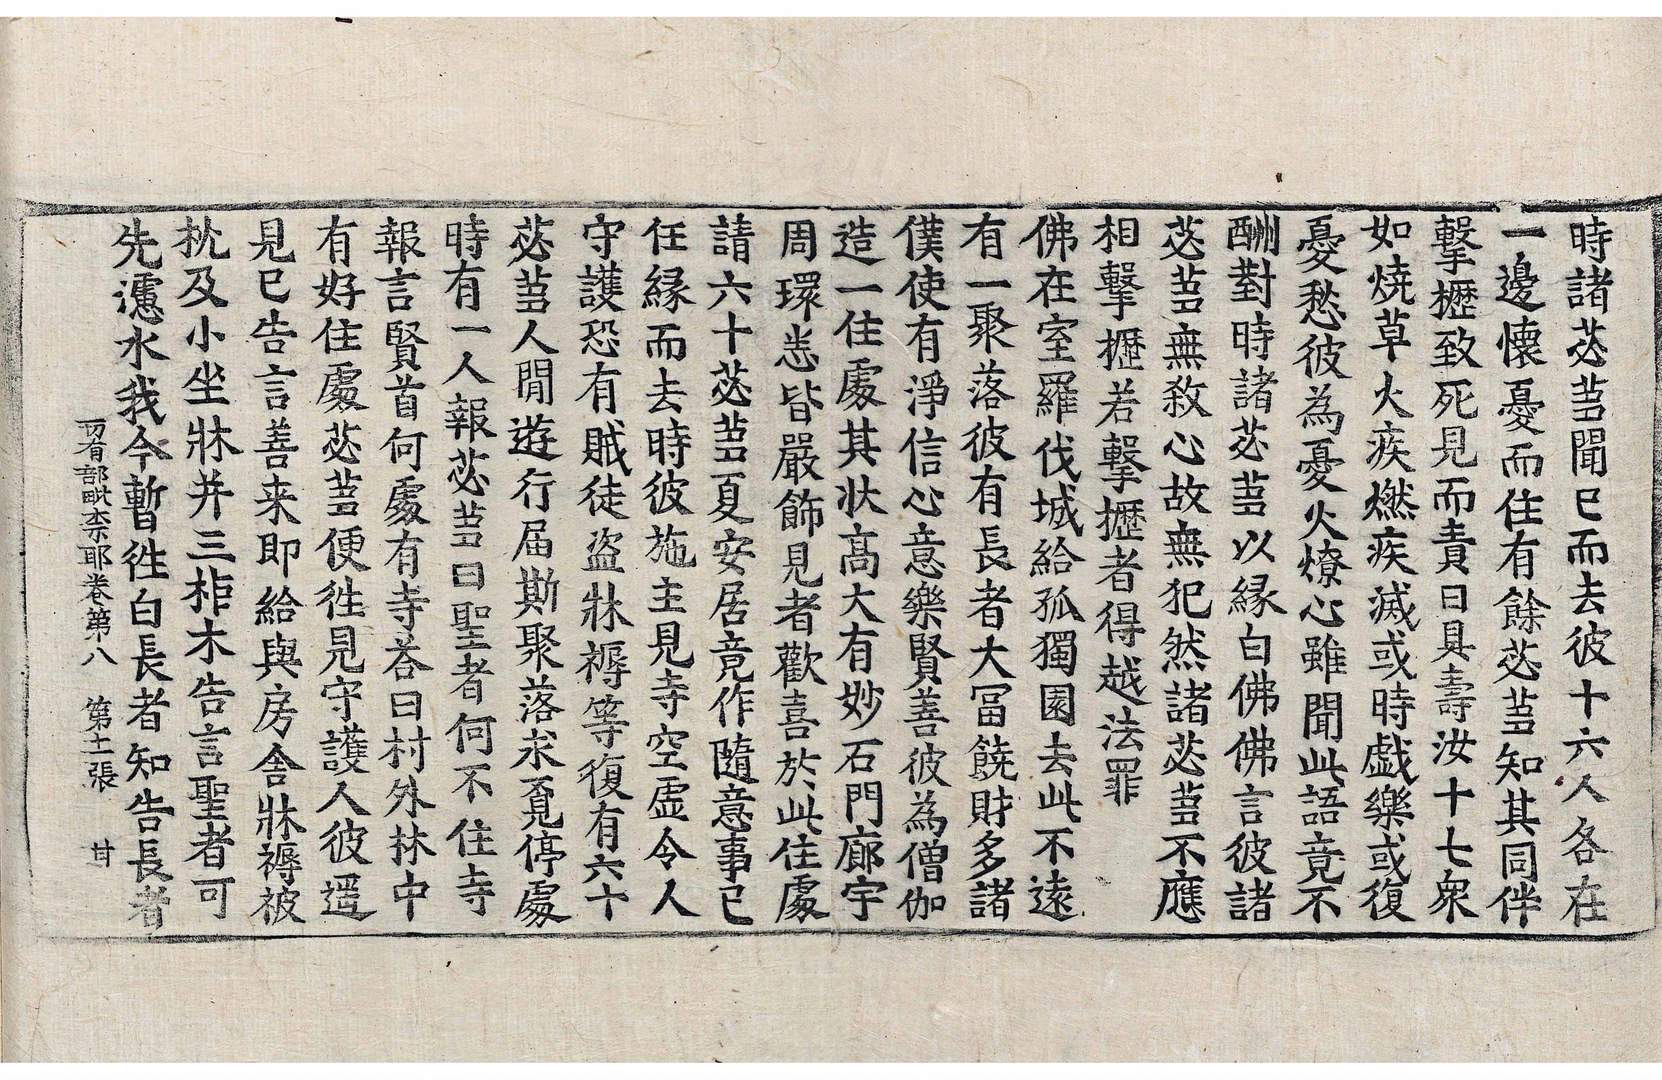 時諸苾芻聞已而去彼十六人各在
一邊懷憂而住有餘苾芻知其同伴
擊攊致死見而責曰具壽汝十七衆
如燒草火疾燃疾滅或時戲樂或復
憂愁彼為憂火燎心雖聞此語竟不
酬對時諸苾芻以緣白佛佛言彼諸
苾芻無殺心故無犯然諸苾芻不應
相擊攊若擊攊者得越法罪
佛在室羅伐城給孤獨園去此不遠
有一聚落彼有長者大冨饒財多諸
僕使有淨信心意樂賢善彼為僧伽
造一住處其狀高大有妙石門廊宇
周環悉皆嚴飾見者歡喜於此住處
請六十苾芻夏安居竟作隨意事已
任緣而去時彼施主見寺空虛令人
守護恐有賊徒盜牀褥等復有六十
苾芻人閒遊行届斯聚落求覓停處
時有一人報苾芻曰聖者何不住寺
報言賢首何處有寺荅曰村外林中
有好住處苾芻便徃見守護人彼遥
見已告言善来即給與房舍牀褥被
枕及小坐牀并三柞木告言聖者可
先濾水我今暫徃白長者知告長者
切有部毗柰耶卷第八 第十二張 甘